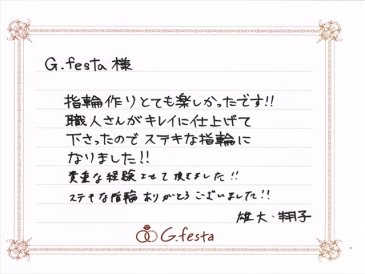 G.festa 様
指輪作りとても楽しかったです!!
職人さんがキレイに仕上げて
下さったので ステキな指輪に
なりました!!
貴重な経験させて頂きました!!
ステキな指輪 ありがとうございました!!
雄大・翔子
G.festa